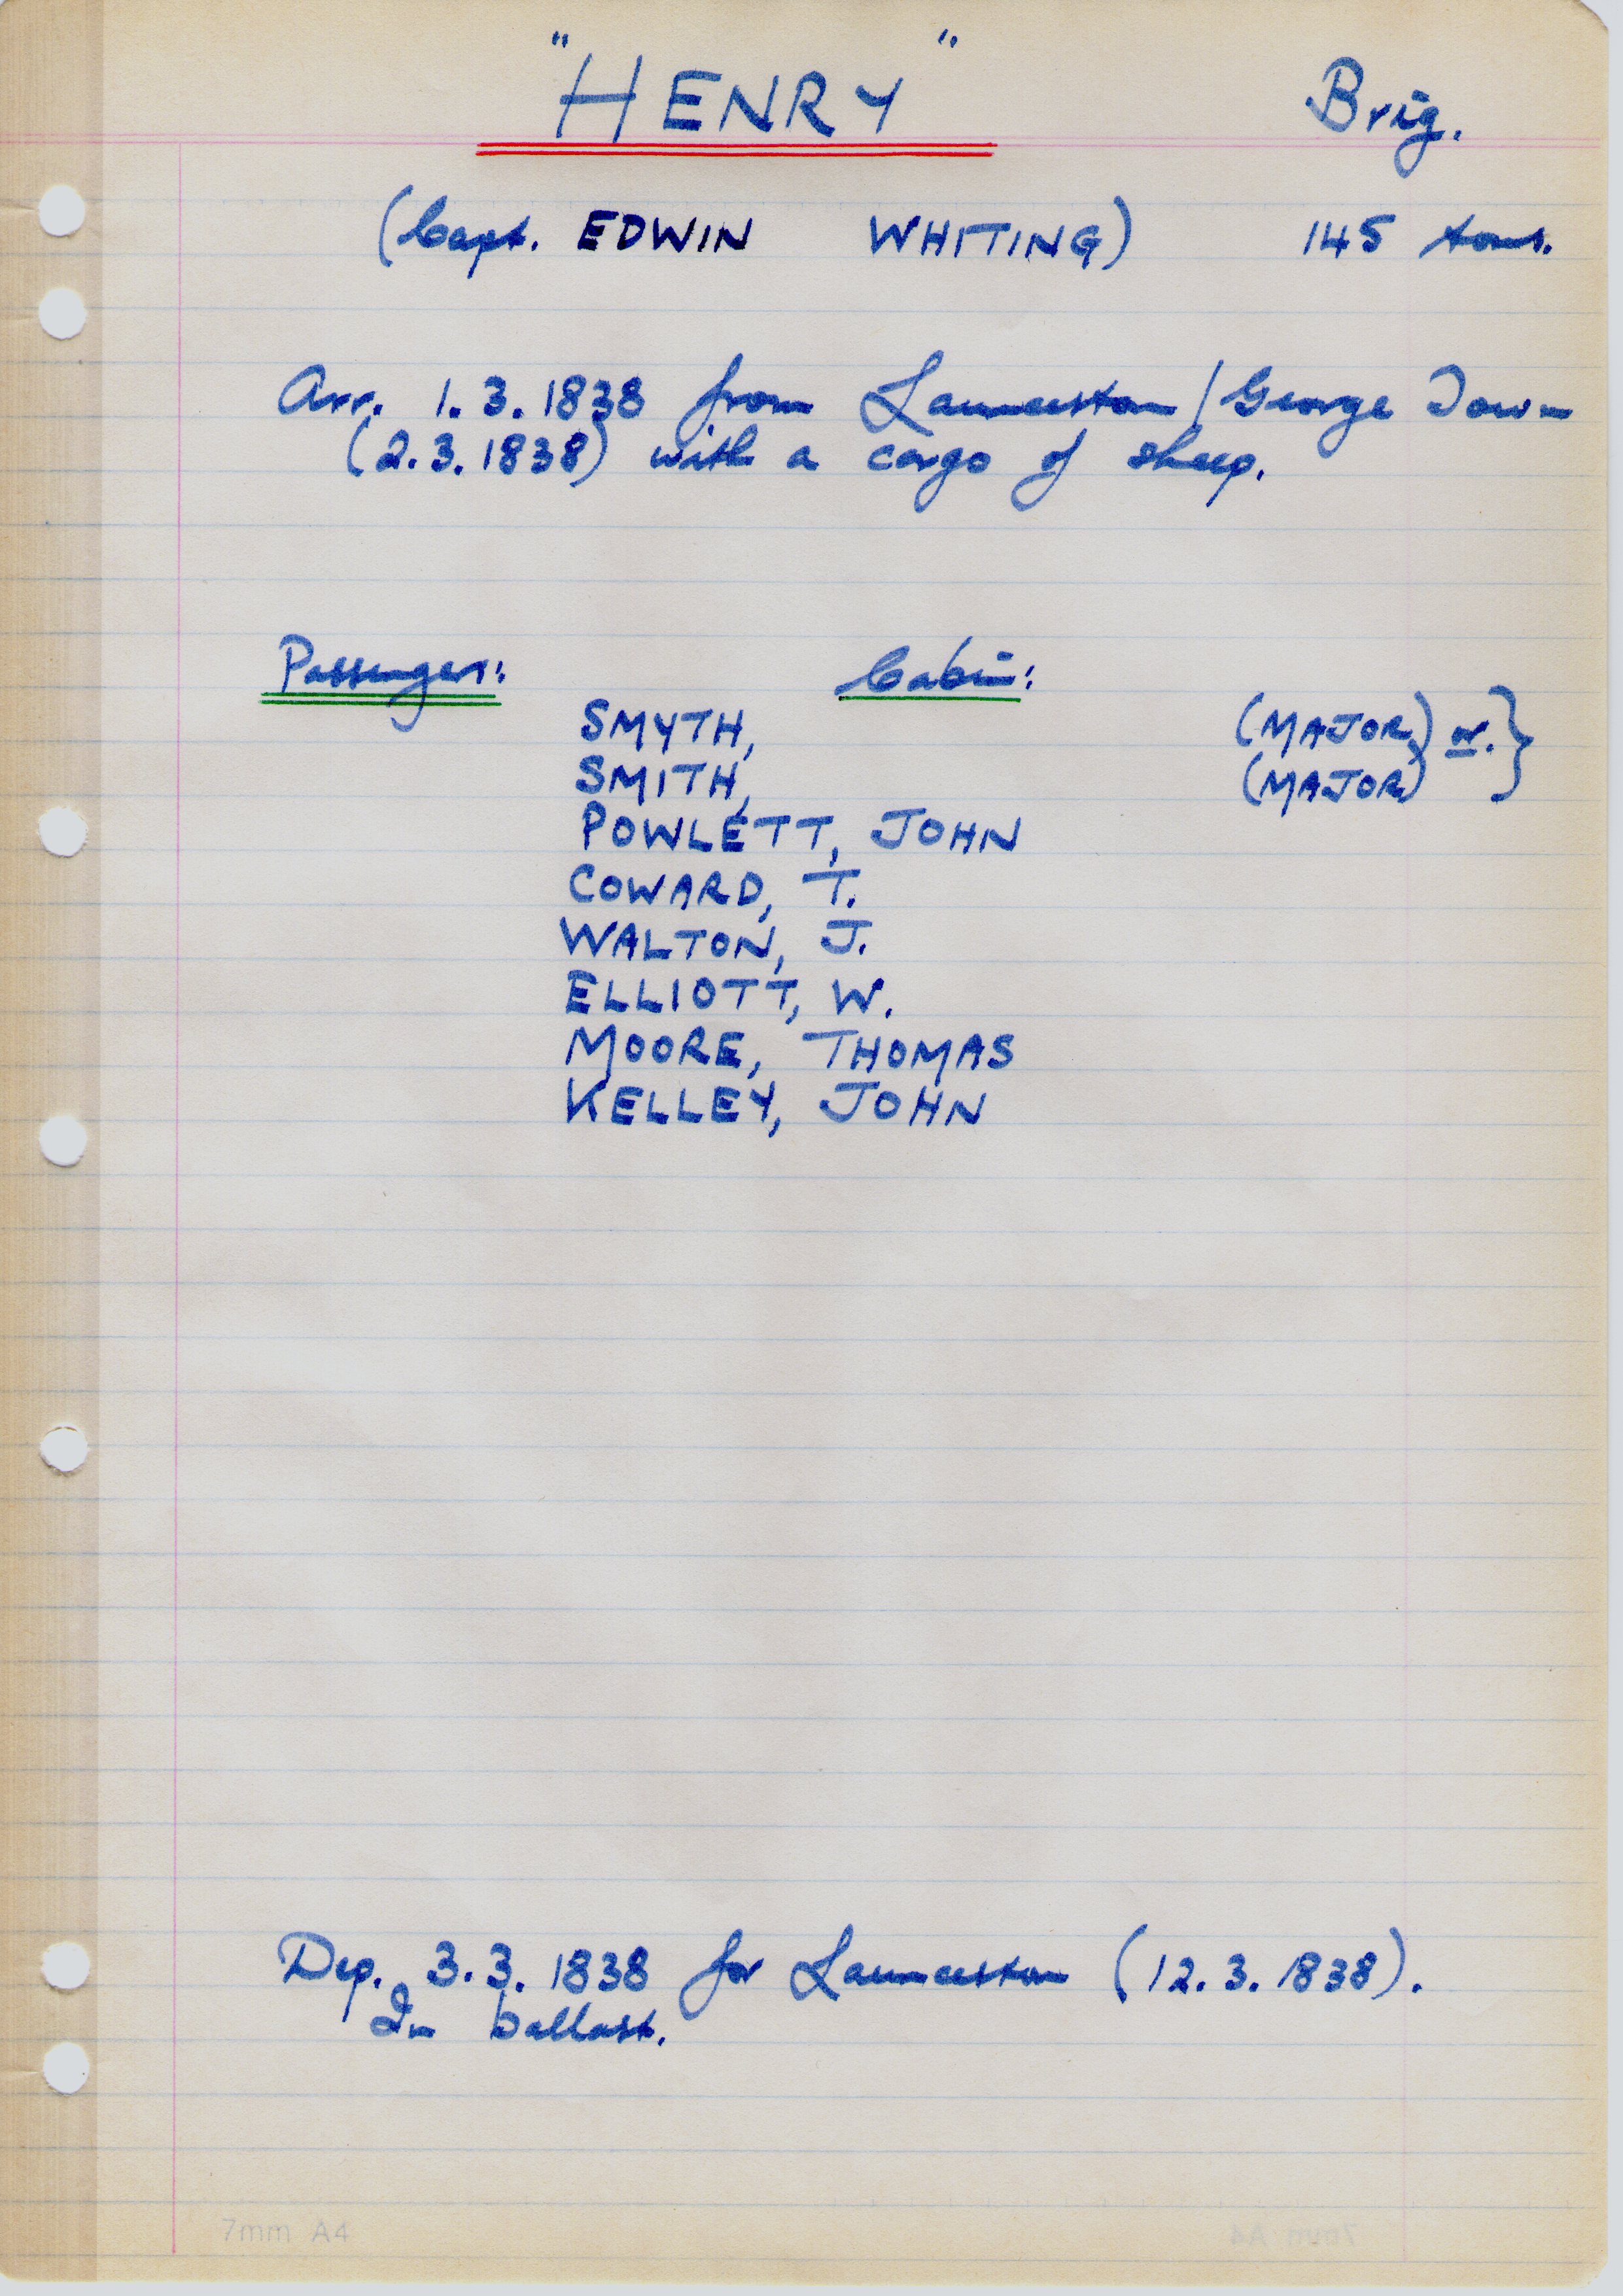 "HENRY" Brig.
(Capt. EDWIN WHITING) 145 tons.
Arr. 1.3.1838 from Launceston/George Town
(2.3.1838) with a cargo of sheep.
Passengers: Cabin:
SMYTH, (MAJOR) or. }
SMITH, (MAJOR)
POWLETT, JOHN
COWARD, T.
WALTON, J.
ELLIOTT, W.
MOORE, THOMAS
KELLEY, JOHN
Dep. 3.3.1838 for Launceston (12.3.1838).
In ballast.
7mm A4